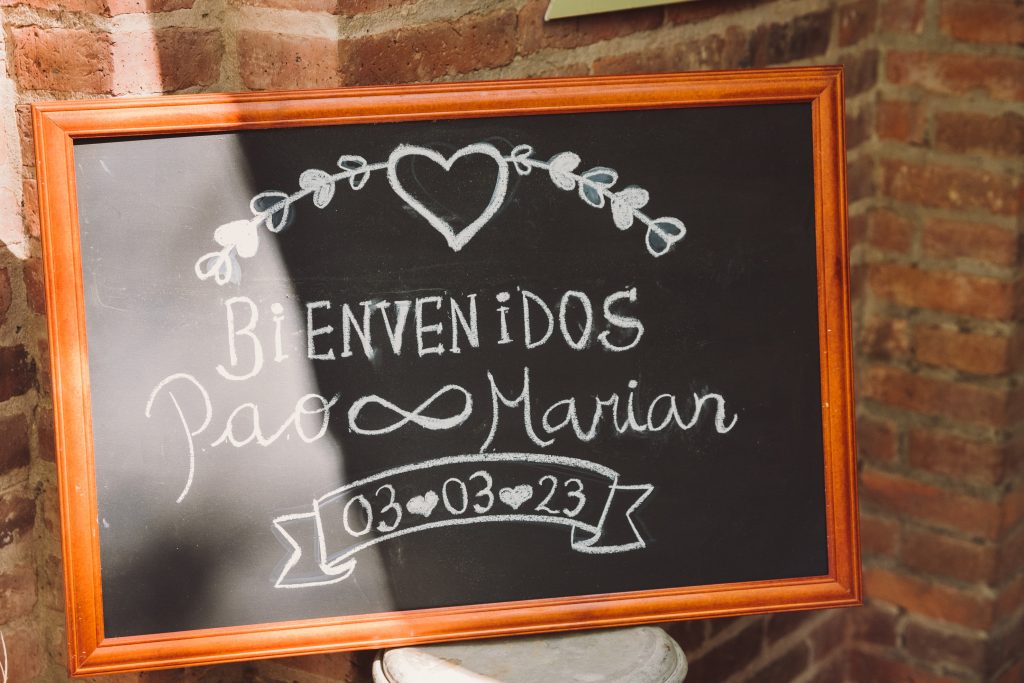 BiENVENiDOS
Pao ∞ Marian
03 ♥ 03 ♥ 23